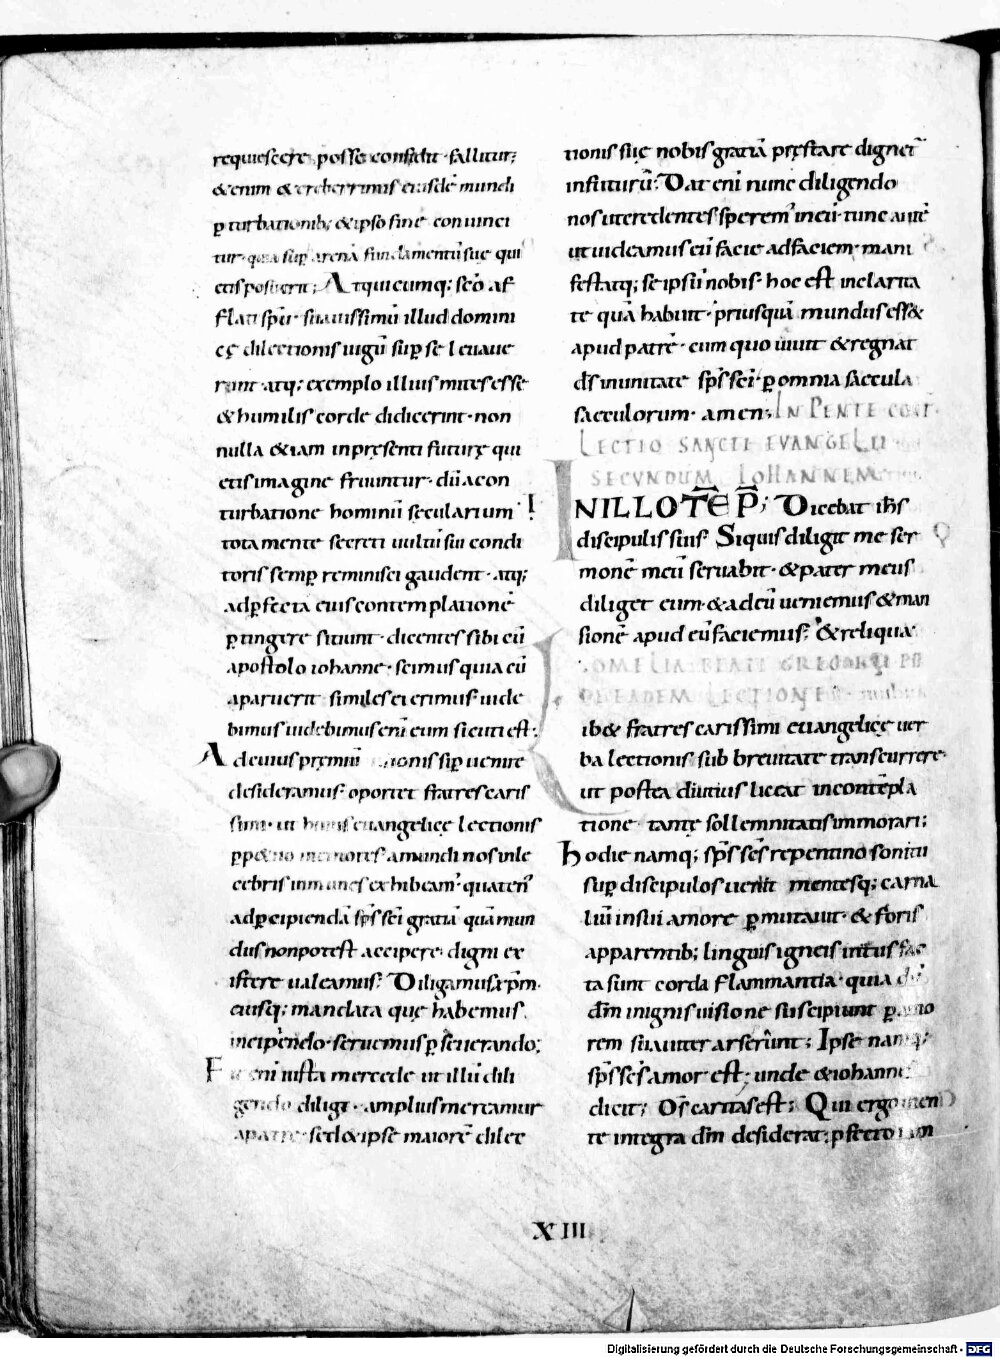 requiescere posse confidit· fallitur;
&enim &creberrimis eiusdē mundi
ꝑturbationib; &ipso fine conuinci
tur· quia suꝑ arenā fundamentū suę qui
etis posuerit; Atqui cumq; scō af
flati spū· suauissimū illud domini
cę dilectionis iugū suꝑ se leuaue
runt· atq; exemplo illius mites esse
& humilis corde didicerint· non
nulla &iam inpręsenti futurę qui
etis imagine fruuntur· dū a con
turbatione hominū secularium
tota mente secreti uultū sui condi
toris semꝑ reminisci gaudent· atq;
adꝑfecta eius contemplationē
ꝑtingere sitiunt· dicentes sibi cū
apostolo iohanne· scimus quia cū
aparuerit similes ei erimus· uide
bimus uidebimus enī eum sicuti est·
Ad cuius pręmiū uisionis suꝑuenire
desideramus· oportet fratres caris
simi· ut huius euangelicę lectionis
pp&uo memores amandi nos inle
cebris inmunes exhibeam᾽· quaten᾽
adꝑcipiendā sp̄s sc̄i gratiā quā mun
dus non potest accipere· digni ex
istere ualeamus; Diligamus xp̄m·
eiusq; mandata quę habemus
incipiendo· seruemus ꝑseuerando;
Fit enī iusta mercede ut illū dili
gendo diligi· amplius mereamur
a patre· sed &ipse maiorē dilec
tionis suę nobis gratiā pręstare dignet᾽
infuturū; Dat enī nunc diligendo
nos ut credentes sperem᾽ in eū· tunc autē
ut uideamus eū facie ad faciem· mani
festatq; se ipsū nobis· hoc est in clarita
te quā habuit· priusquā mundus ess&
apud patrē· cum quo uiuit &regnat
ds̄ in unitate sp̄s sc̄i· ꝑ omnia saecula
saeculorum· amen; IN PENTECOST·
LECTIO SANCTI EVANGELII
SECUNDUM IOHANNEM
IN ILLO TĒP̄; Dicebat ih̄s
discipulis suis· Siquis diligit me ser
monē meū seruabit· &pater meus
diliget eum· &ad eū ueniemus &man
sionē apud eū faciemus; &reliqua·
OMELIA BEATI GREGORII PP
DE EADEM LECTIONE·
ib& fratres carissimi euangelicę uer
ba lectionis sub breuitate transcurrere·
ut postea diutius liceat in contēpla
tione· tantę sollemnitatis immorari;
hodie namq; sp̄s sc̄s repentino sonitu
suꝑ discipulos uenit mentesq; carna
liū in sui amore ꝑmutauit· & foris
apparentib; linguis igneis intus fac
ta sunt corda flammantia· quia dū
dm̄ in ignis uisione suscipiunt ꝑ amo
rem suauiter arserunt; Ipse namq;
sp̄s sc̄s amor est; unde &iohannes
dicit; Ds̄ caritas est; Qui ergo men
te integra dm̄ desiderat; ꝓfecto iam
XIII
Digitalisierung gefördert durch die Deutsche Forschungsgemeinschaft - DFG